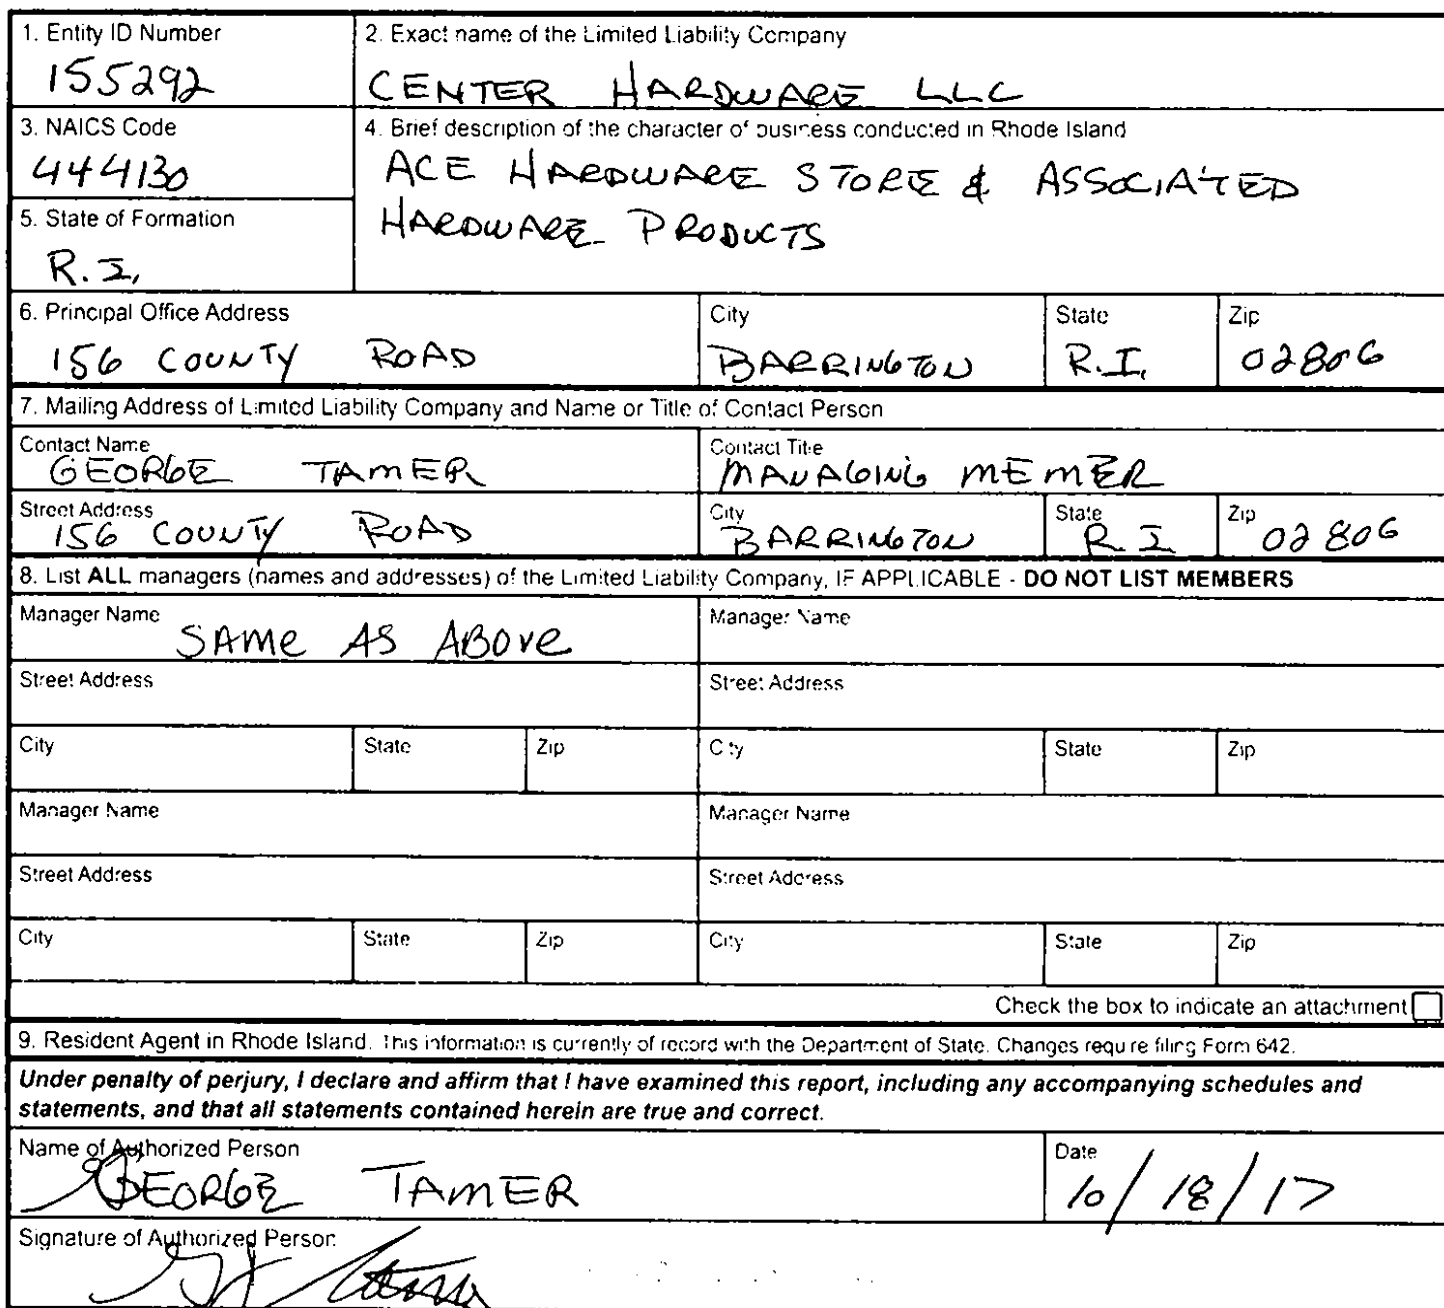 1. Entity ID Number
155292
2. Exact name of the Limited Liability Company
CENTER HARDWARE LLC
3. NAICS Code
444130
4. Brief description of the character of business conducted in Rhode Island
ACE HARDWARE STORE & ASSOCIATED
HARDWARE PRODUCTS
5. State of Formation
R.I.
6. Principal Office Address
156 COUNTY ROAD
City
BARRINGTON
State
R.I.
Zip
02806
7. Mailing Address of Limited Liability Company and Name or Title of Contact Person
Contact Name
GEORGE TAMER
Contact Title
MANAGING MEMER
Street Address
156 COUNTY ROAD
City
BARRINGTON
State
R I
Zip
02806
8. List ALL managers (names and addresses) of the Limited Liability Company, IF APPLICABLE - DO NOT LIST MEMBERS
Manager Name
SAME AS ABOVE
Manager Name
Street Address
Street Address
City
State
Zip
City
State
Zip
Manager Name
Manager Name
Street Address
Street Address
City
State
Zip
City
State
Zip
Check the box to indicate an attachment
9. Resident Agent in Rhode Island. This information is currently of record with the Department of State. Changes require filing Form 642.
Under penalty of perjury, I declare and affirm that I have examined this report, including any accompanying schedules and
statements, and that all statements contained herein are true and correct.
Name of Authorized Person
GEORGE TAMER
Date
10/18/17
Signature of Authorized Person